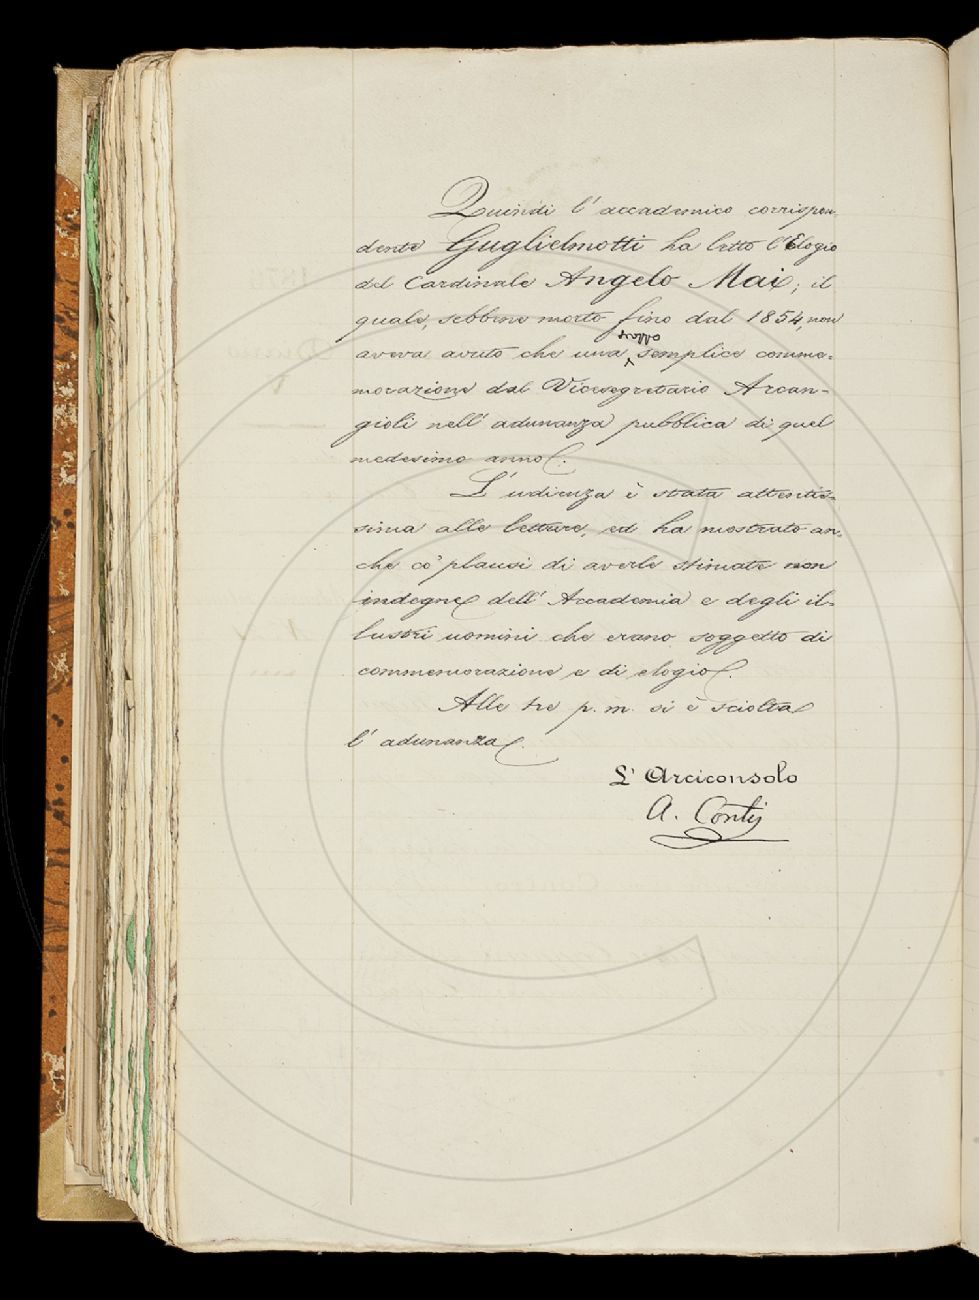 Quindi l'accademico corrispon-
dente Guglielmotti ha letto l'Elogio
del Cardinale Angelo Mai; il
quale, sebbene morto fino dal 1854, non
troppo
aveva avuto che una semplice comme-
morazione dal Vicesegretario Arcan-
gioli nell'adunanza pubblica di quel
medesimo anno.
L'udienza è stata attentis-
sima alle letture, ed ha mostrato an-
che co' plausi di averle stimate non
indegne dell'Accademia e degli il-
lustri uomini che erano soggetto di
commemorazione e di elogio.
Alle tre p. m. si è sciolta
l'adunanza.
L'Arciconsolo
A. Conti